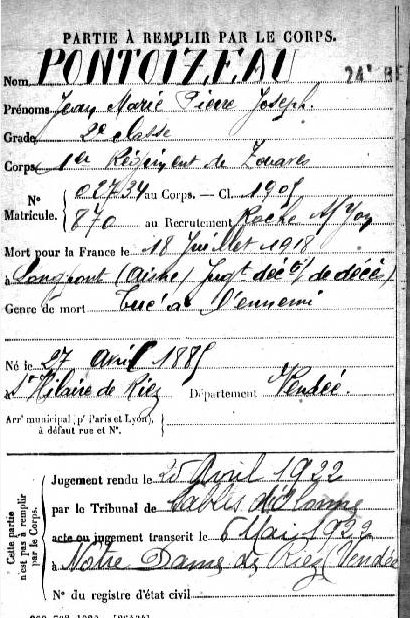 PARTIE À REMPLIR PAR LE CORPS.
Nom PONTOIZEAU
Prénoms Jean Marie Pierre Joseph.
Grade 2e classe
Corps 1er Régiment de Zouaves
N° Matricule. 02734 au Corps. — Cl. 1905
870 au Recrutement Roche s/ Yon
Mort pour la France le 18 Juillet 1918
à Longpont (Aisne) Jugt décl/ de décè)
Genre de mort tué à l'ennemi
Né le 27 Avril 1885
St Hilaire de Riez Département Vendée.
Arrt municipal (pr Paris et Lyon),
à défaut rue et N°.
Cette partie n'est pas à remplir par le Corps.
Jugement rendu le 20 Avril 1922
par le Tribunal de Sables d'Olonne
acte ou jugement transcrit le 6 Mai 1922
à Notre Dame de Riez (Vendée
N° du registre d'état civil